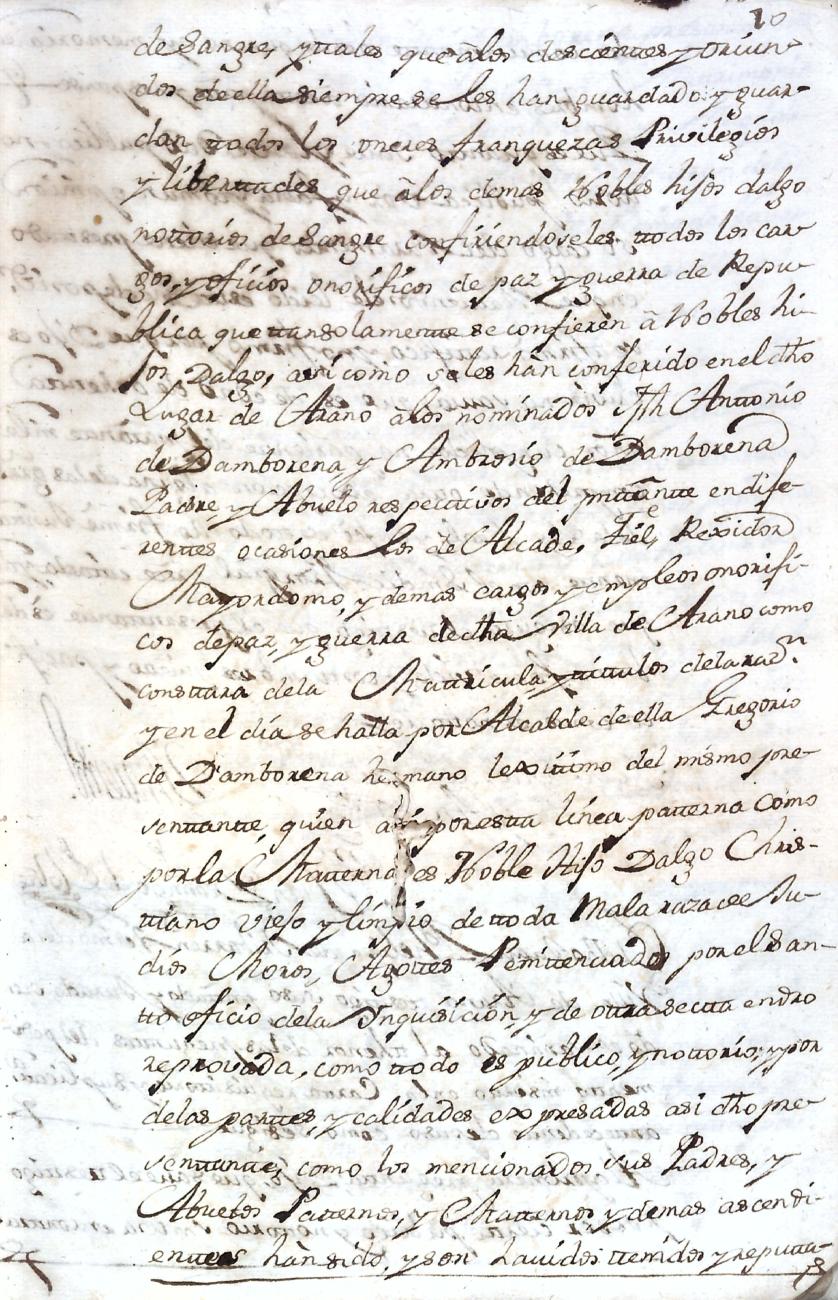 10
de Sangre, y ttales que â los descientes y oriun-
dos de ella siempre se les han guardado y guar-
dan ttodos los oneres franquezas Privilegios
y liberttades que â los demas Nobles hijos dalgo
nottorios de Sangre confiriendoseles ttodos los car-
gos, y oficios onorificos de paz y guerra de Repu-
blica que ttansolamentte se confieren â Nobles hi-
jos Dalgo, asi como se les han conferido en el dho
Lugar de Arano â los nominados Jph Anttonio
de Damborena y Ambrosio de Damborena
Padre, y Abuelo respectivos del pnttante en dife-
renttes ocasiones los de Alcade, Fiel, Rexidor
Mayordomo, y demas cargos y empleos onorifi-
cos de paz, y guerra de dha Villa de Arano como
consttara de la Mattricula, y tittulos de la
y en el dia se halla por Alcalde de ella Gregorio
de Damborena hermano lexittimo del mismo pre-
senttante, quien asi por estta linea patterna como
por la Matterna es Noble Hijo Dalgo Chris-
ttiano viejo y limpio de ttoda Mala raza de Ju-
dios Moros, Agottes Penittenciados por el San-
tto oficio de la Ynquisicion, y de ottra sectta en dro
reprovada, como ttodo es publico, y nottorio; y por
de las parttes, y calidades expresadas asi dho pre-
senttante, como los mencionados sus Padres, y
Abuelos Patternos, y Matternos y demas ascendi-
enttes han sido, y son havidos ttenidos y reputta-